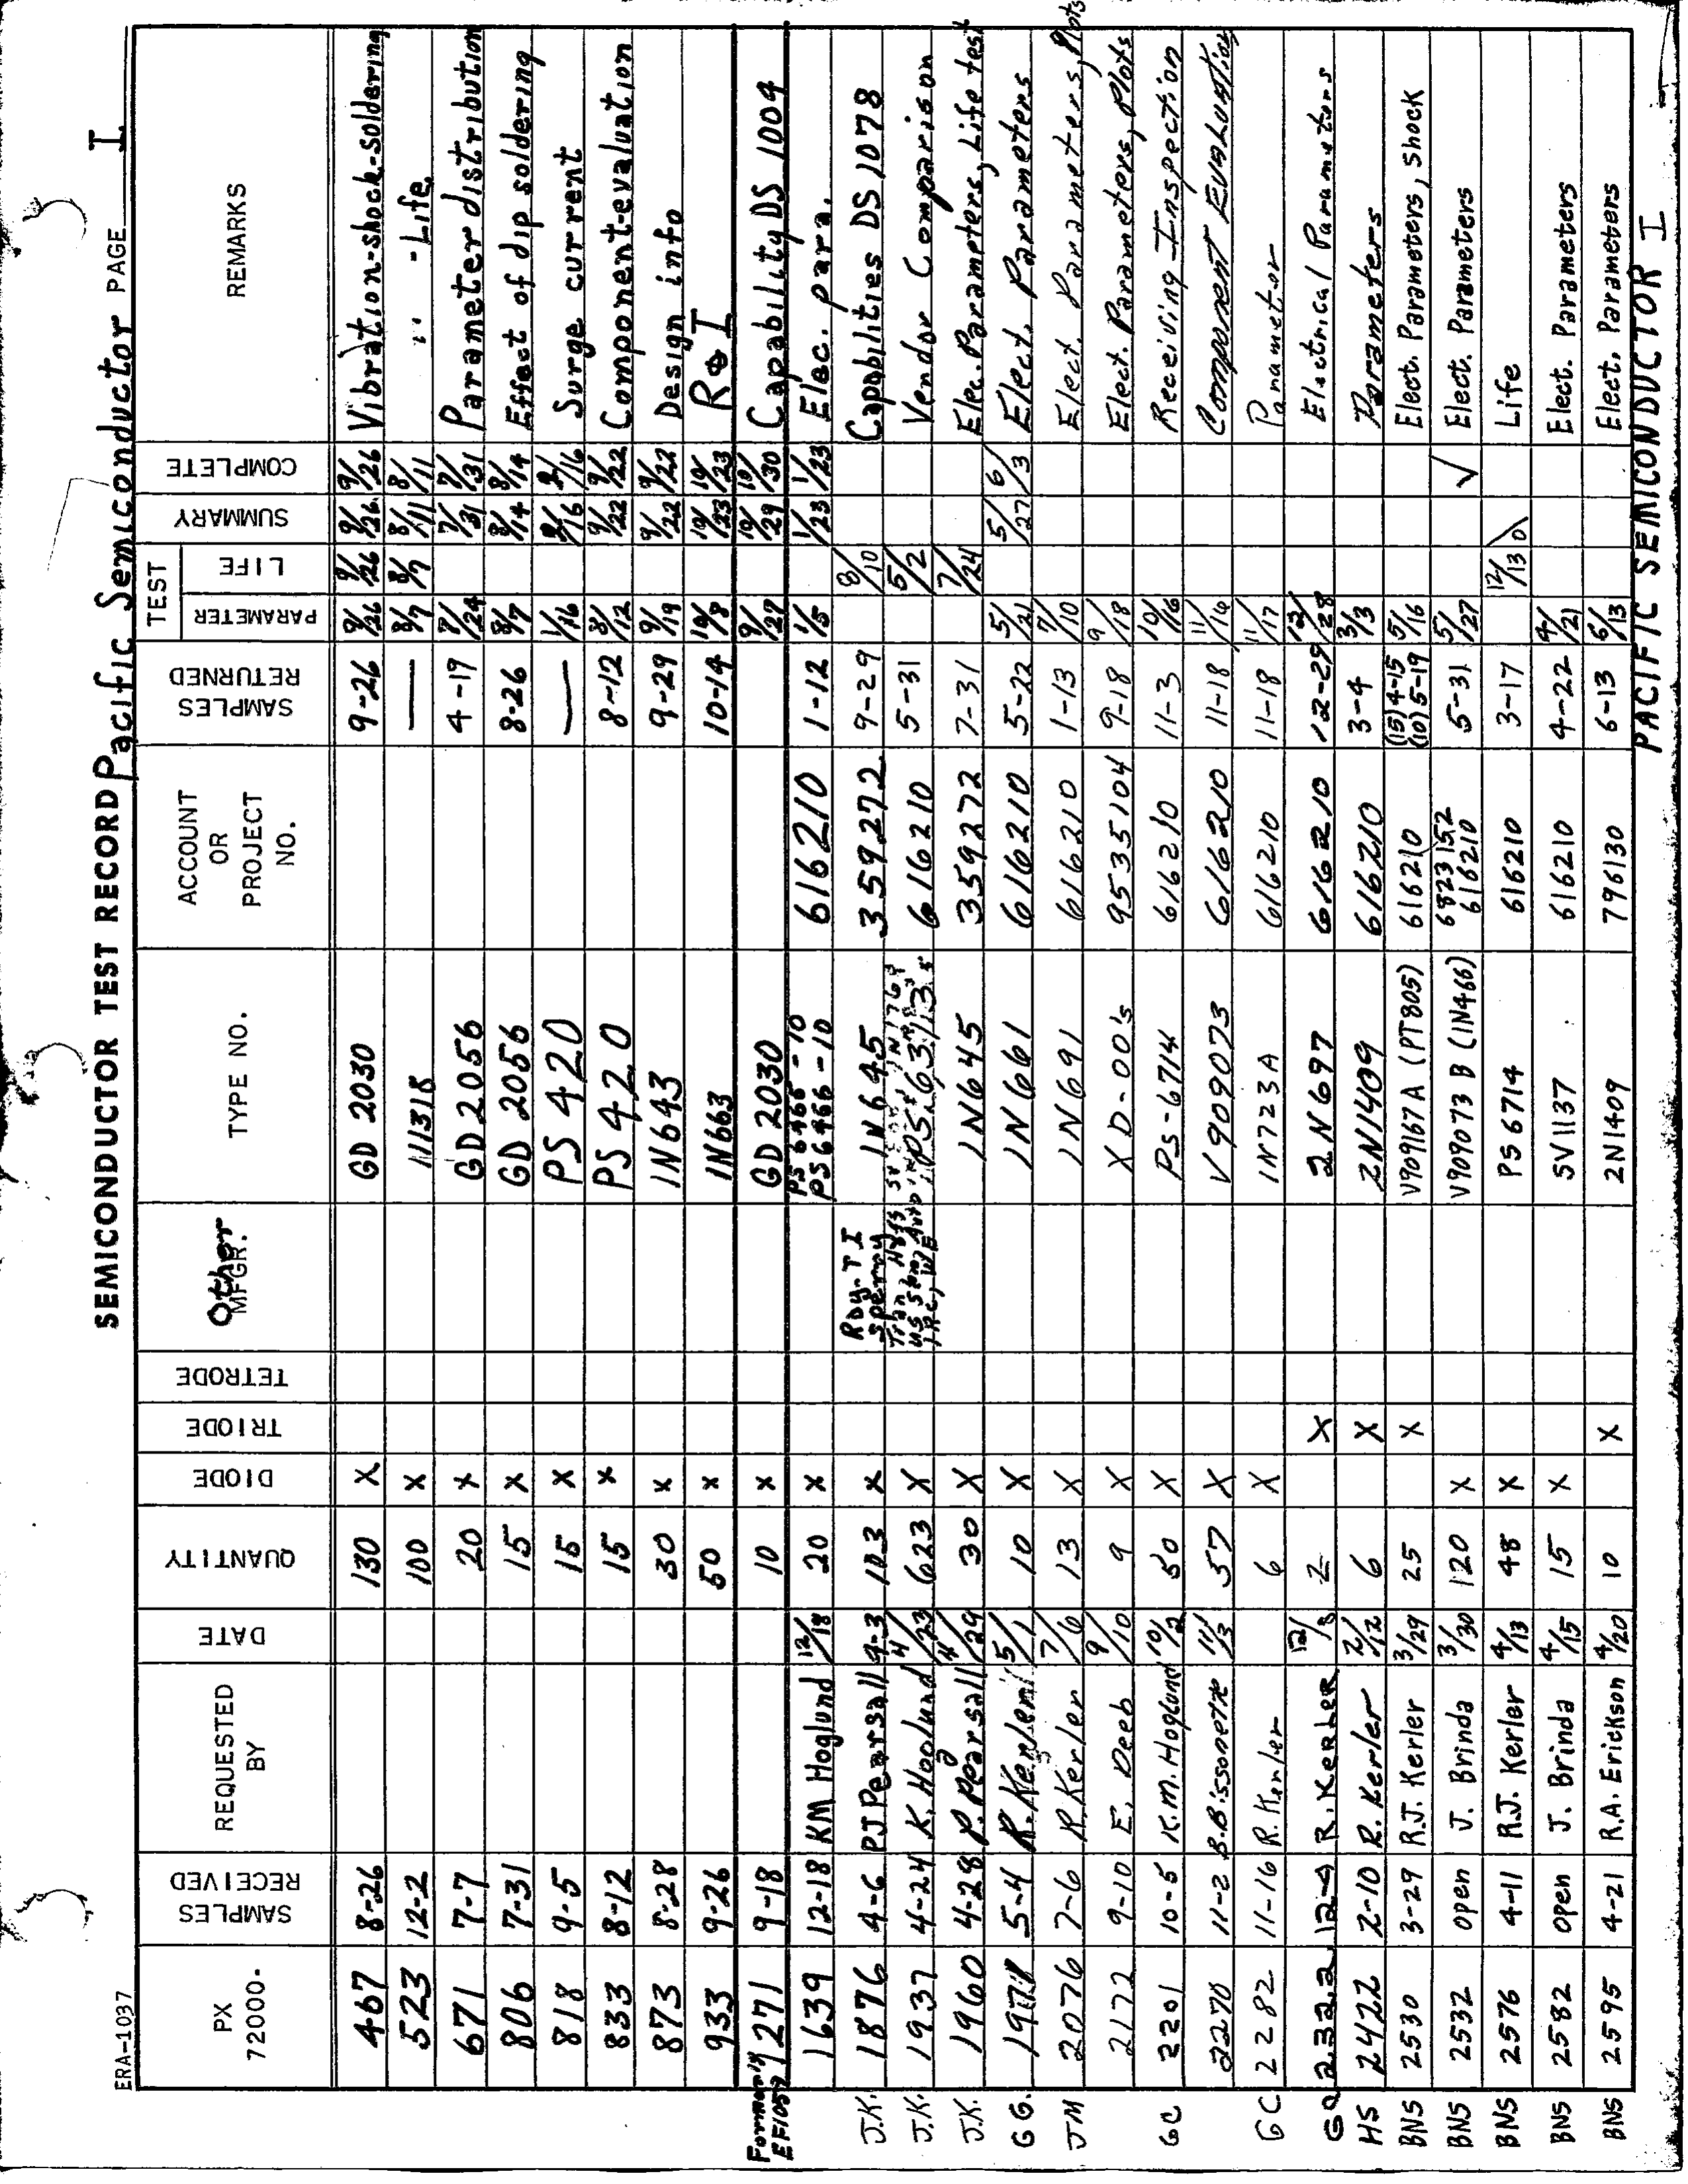 ERA-1037
SEMICONDUCTOR TEST RECORD Pacific Semiconductor PAGE I
PX 72000. | SAMPLES RECEIVED | REQUESTED BY | DATE | QUANTITY | DIODE | TRIODE | TETRODE | Other MFGR. | TYPE NO. | ACCOUNT OR PROJECT NO. | SAMPLES RETURNED | TEST PARAMETER | TEST LIFE | SUMMARY | COMPLETE | REMARKS
467 8-26 130 X GD 2030 9-26 9/26 9/26 9/26 9/26 Vibration-shock-soldering
523 12-2 100 X 111318 — 8/7 8/7 8/11 8/11 " - Life
671 7-7 20 X GD 2056 4-19 7/24 7/31 7/31 Parameter distribution
806 7-31 15 X GD 2056 8-26 8/7 8/14 8/14 Effect of dip soldering
818 9-5 15 X PS 420 — 1/16 Surge current
833 8-12 15 X PS 420 8-12 8/12 9/22 9/22 Component-evaluation
873 8-28 30 X 1N643 9-29 9/19 9/22 9/22 Design info
933 9-26 50 X 1N663 10-14 10/8 10/23 10/23 R I
Formerly EF1057 1271 9-18 10 X GD 2030 9/27 10/29 10/30 Capability DS 1004
1639 12-18 KM Hoglund 12/18 20 X PS6465-10 PS6466-10 616210 1-12 1/5 1/23 1/23 Elec. para.
J.K. 1876 4-6 PJ Pearsall 4-3 103 X Ray-TI Sperry 1N645 359272 9-29 8/10 Capabilities DS 1078
J.K. 1937 4-24 K. Hoglund 4/23 623 X 616210 5-31 5/2 Vendor Comparison
J.K. 1960 4-28 P. Pearsall 4/29 30 X 1N645 359272 7-31 7/24 Elec. Parameters, Life test
G G. 5-4 5/1 10 X 1N661 616210 5-22 5/21 5/27 6/3 Elect. Parameters
JM 2076 7-6 R. Kerler 7/6 13 X 1N691 616210 1-13 7/10 Elect. Parameters, Plots
2172 9-10 E. Deeb 9/10 9 X XD-00's 9535104 9-18 9/18 Elect. Parameters, Plots
GC 2201 10-5 K.M. Hoglund 10/2 50 X PS-6714 616210 11-3 10/16 Receiving-Inspection
2270 11-2 B. Bissonette 11/3 57 X V909073 616210 11-18 11/16 Component Evaluation
GC 2282 11-16 R. Kerler 6 X 1N723A 616210 11-18 11/17 Parameter
2322 12-9 R. Kerler 12/8 2 X 2N697 616210 12-29 12/28 Electrical Parameters
HS 2422 2-10 R. Kerler 2/12 6 X 2N1409 616210 3-4 3/3 Parameters
BNS 2530 3-29 R.J. Kerler 3/29 25 X V909167A (PT805) 616210 (15) 4-15 (10) 5-19 5/16 Elect. Parameters, Shock
BNS 2532 open J. Brinda 3/30 120 X V909073 B (1N466) 6823152 616210 5-31 5/27 ✓ Elect. Parameters
BNS 2576 4-11 R.J. Kerler 4/13 48 X PS6714 616210 3-17 12/13 Life
BNS 2582 open J. Brinda 4/15 15 X SV1137 616210 4-22 4/21 Elect. Parameters
BNS 2595 4-21 R.A. Erickson 4/20 10 X 2N1409 796130 6-13 6/13 Elect. Parameters
PACIFIC SEMICONDUCTOR I